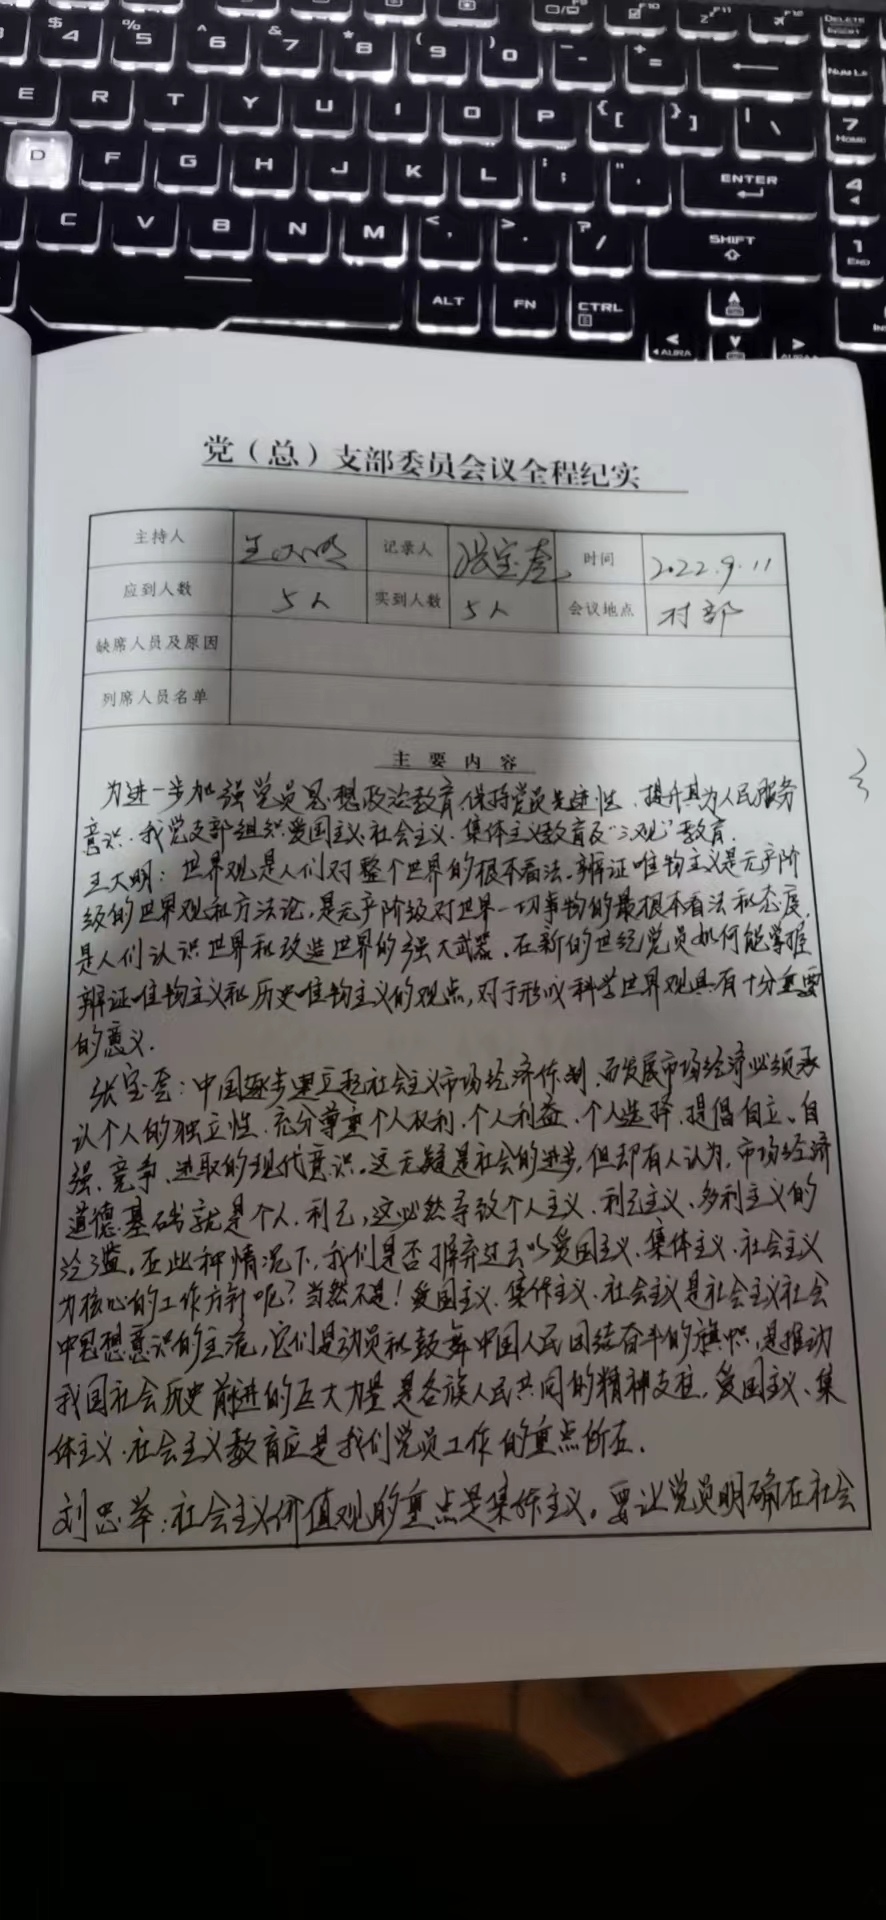 $ 4 % 5 ^ 6 & 7 * 8 ( 9 ) 0 _ - + = DELETE INSERT NUM LK
E R T Y U I O P { [ } ] | \ 7 HOME
D F G H J K L : ; " ' ENTER 4
C V B N M < , > . ? / SHIFT 1 END
ALT FN CTRL
AURA
党（总）支部委员会议全程纪实
主持人 王大明 记录人 张宝奎 时间 2022.9.11
应到人数 5人 实到人数 5人 会议地点 村部
缺席人员及原因
列席人员名单
主要内容
为进一步加强党员思想政治教育保持党员先进性、提升其为人民服务
意识.我党支部组织爱国主义.社会主义.集体主义教育及“三观”教育.
王大明：世界观是人们对整个世界的根本看法.辨证唯物主义是无产阶
级的世界观和方法论,是无产阶级对世界一切事物的最根本看法和态度,
是人们认识世界和改造世界的强大武器.在新的世纪党员如何能掌握
辨证唯物主义和历史唯物主义的观点,对于形成科学世界观具有十分重要
的意义.
张宝奎：中国逐步建立起社会主义市场经济体制,而发展市场经济必须承
认个人的独立性.充分尊重个人权利、个人利益、个人选择,提倡自立、自
强、竞争、进取的现代意识。这无疑是社会的进步,但却有人认为,市场经济
道德基础就是个人、利己,这必然导致个人主义、利己主义、多利主义的
泛滥。在此种情况下,我们是否摒弃过去以爱国主义、集体主义、社会主义
为核心的工作方针呢?当然不是!爱国主义、集体主义、社会主义是社会主义社会
中思想意识的主流,它们是动员和鼓舞中国人民团结奋斗的旗帜,是推动
我国社会历史前进的巨大力量是各族人民共同的精神支柱.爱国主义、集
体主义.社会主义教育应是我们党员工作的重点所在.
刘忠举:社会主义价值观的重点是集体主义。要让党员明确在社会